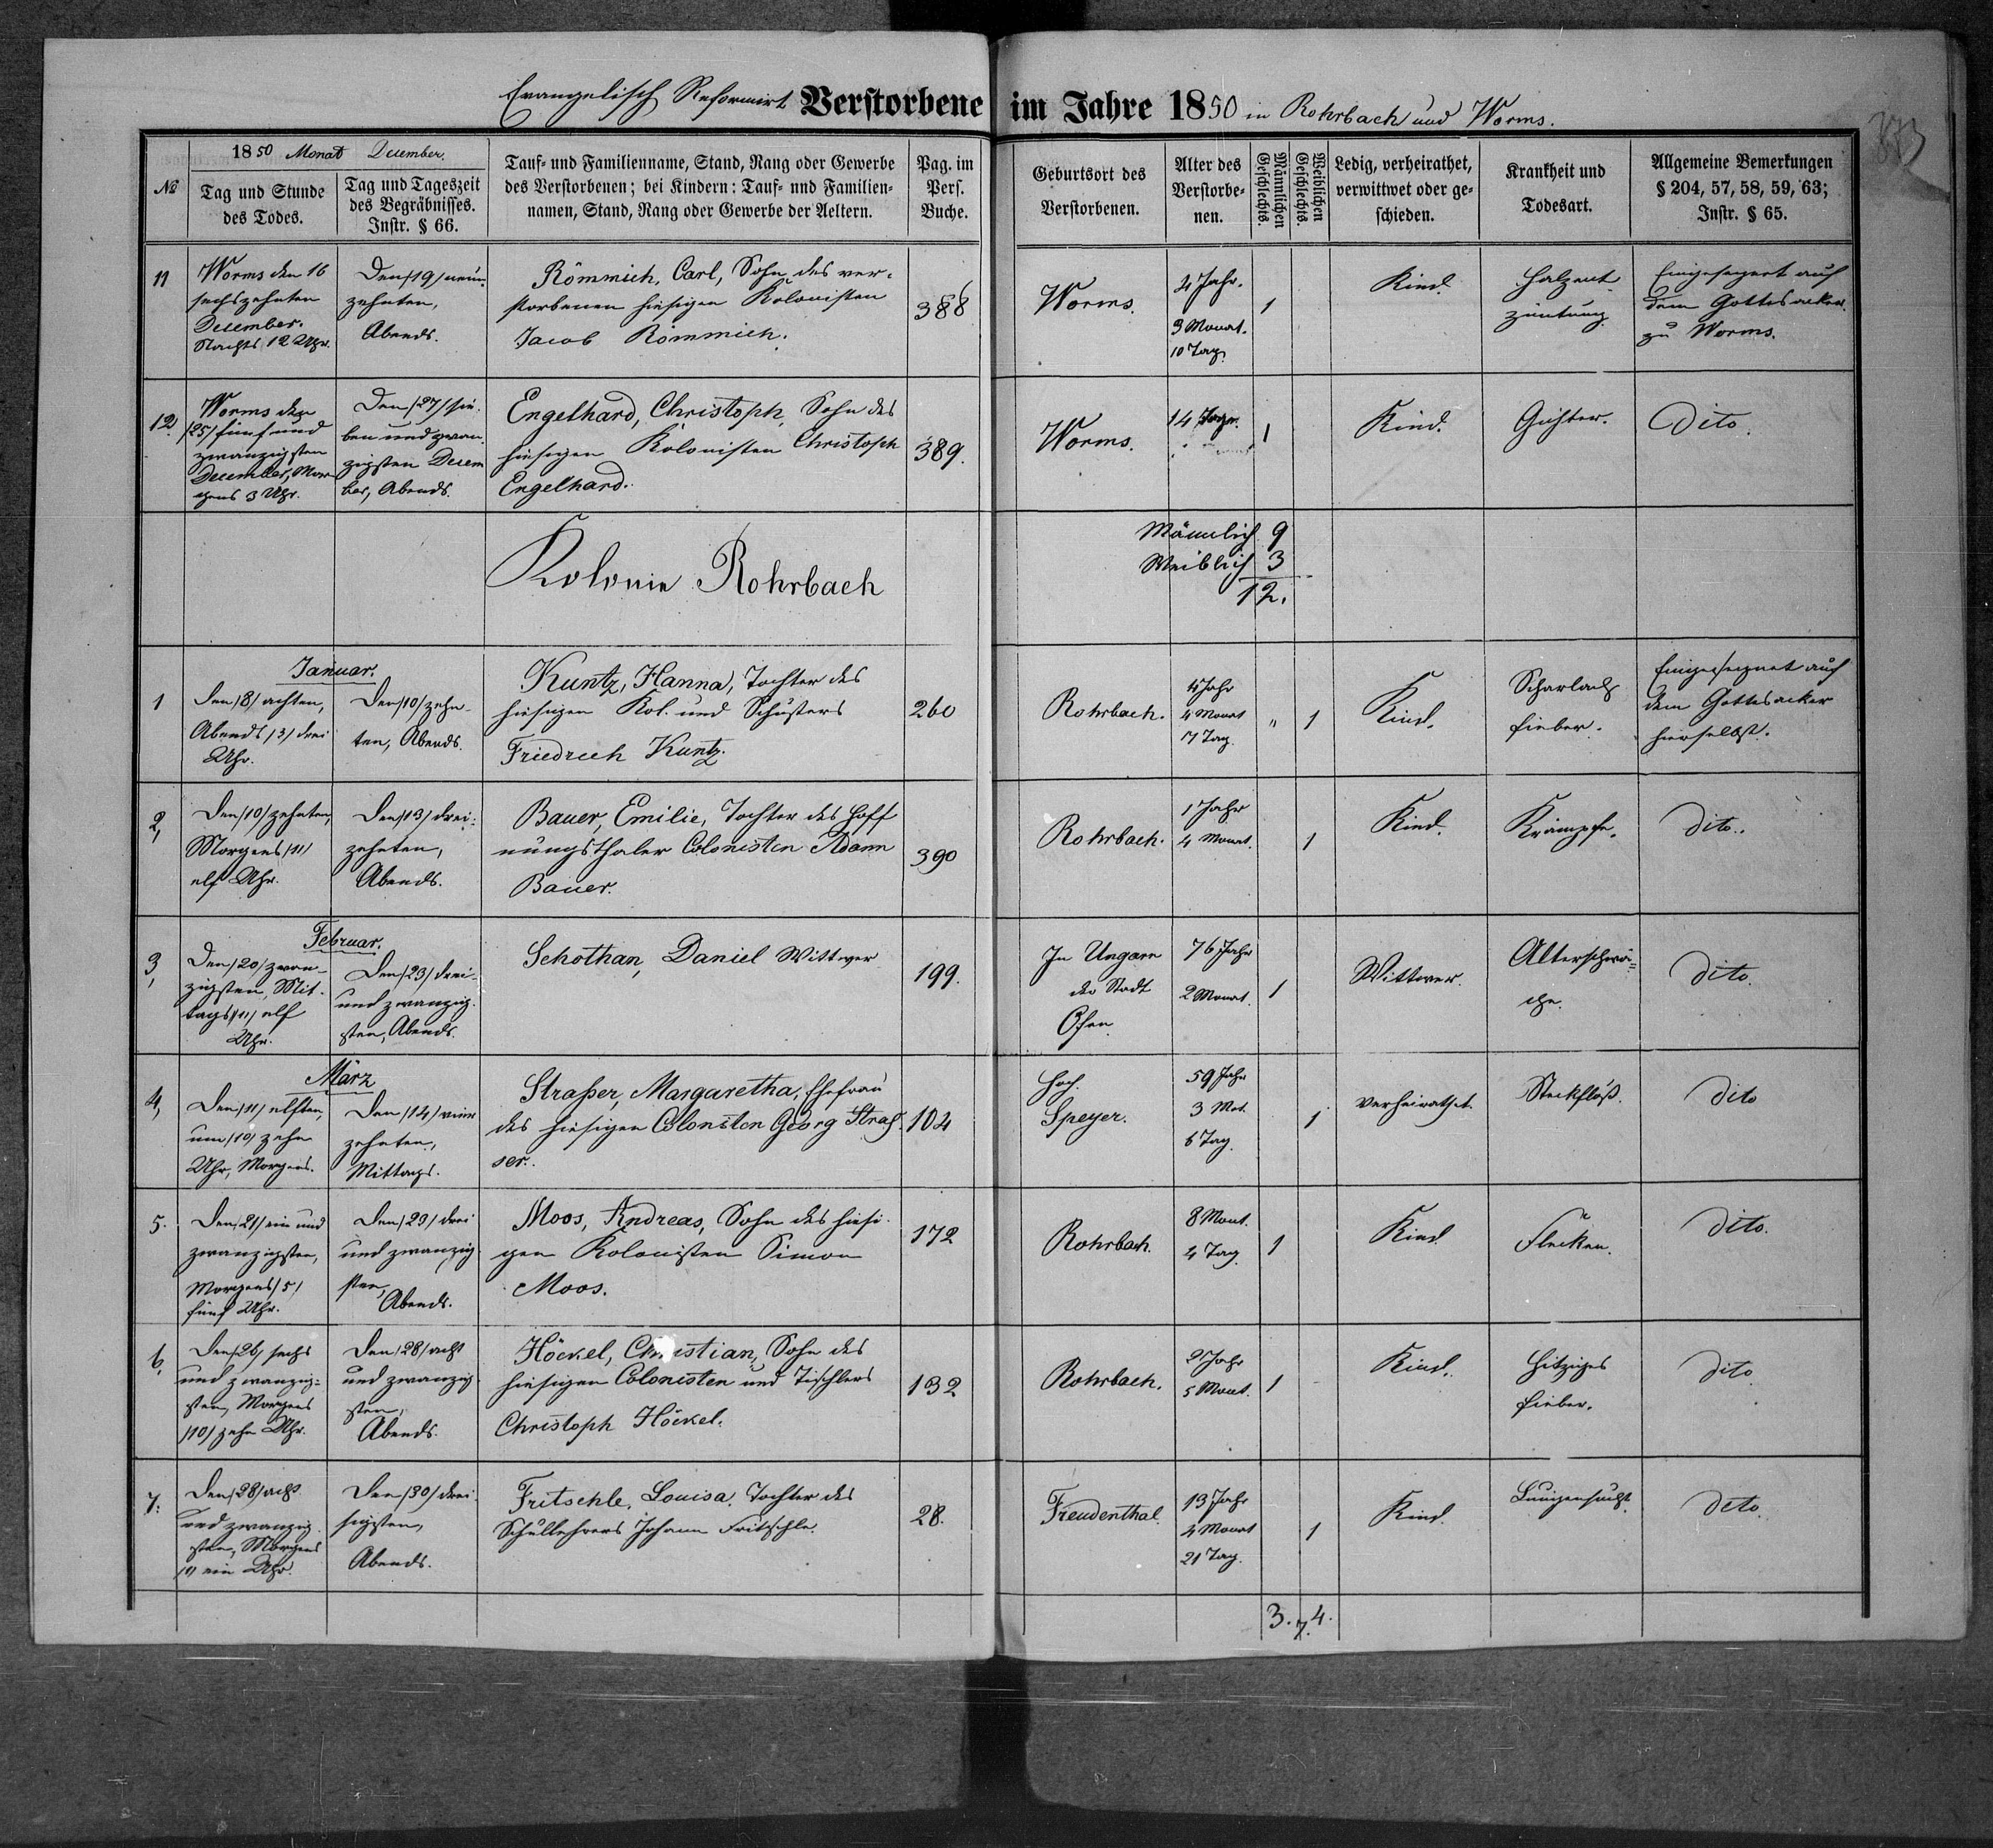 Evangelisch Reformirt Verstorbene im Jahre 1850 in Rohrbach und Worms.
373
№
1850 Monat December.
Tag und Stunde
des Todes.
Tag und Tageszeit
des Begräbnisses.
Instr. § 66.
Tauf- und Familienname, Stand, Rang oder Gewerbe
des Verstorbenen; bei Kindern: Tauf- und Familien-
namen, Stand, Rang oder Gewerbe der Aeltern.
Pag. im
Pers.
Buche.
Geburtsort des
Verstorbenen.
Alter des
Verstorbe-
nen.
Männlichen
Geschlechts.
Weiblichen
Geschlechts.
Ledig, verheirathet,
verwittwet oder ge-
schieden.
Krankheit und
Todesart.
Allgemeine Bemerkungen
§ 204, 57, 58, 59, 63;
Instr. § 65.
11
Worms den 16
sechszehnten
December.
Nachts 12 Uhr.
Den /19/ neun-
zehnten,
Abends.
Römmich, Carl, Sohn des ver-
storbenen hiesigen Kolonisten
Jacob Römmich.
388
Worms.
4 Jahr.
3 Monat.
10 Tag.
1
Kind.
Halzent
züntung.
Eingesegnet auf
dem Gottesacker
zu Worms.
12.
Worms den
/25/ fünf und
zwanzigsten
December, Mor
gens 3 Uhr.
Den /27/ sie-
ben und zwan-
zigsten Decem
ber, Abends.
Engelhard, Christoph, Sohn des
hiesigen Kolonisten Christoph
Engelhard.
389.
Worms.
14 Tage.
1
Kind.
Gichter.
Dito.
Kolonie Rohrbach
Männlich 9
Weiblich 3
12.
Januar.
1
Den /8/ achten,
Abends /3/ drei
Uhr.
Den /10/ zehn-
ten, Abends.
Kuntz, Hanna, Tochter des
hiesigen Kol. und Schusters
Friedrich Kuntz.
260
Rohrbach.
4 Jahr
4 Monat
7 Tag.
" 1
Kind.
Scharlach
fieber.
Eingesegnet auf
dem Gottesacker
hierselbst.
2,
Den /10/ zehnten,
Morgens /11/
elf Uhr.
Den /13/ drei-
zehnten,
Abends.
Bauer, Emilie, Tochter des Hoff
nungsthaler Colonisten Adam
Bauer.
390
Rohrbach.
1 Jahr
4 Monat.
1
Kind.
Krämpfe.
dito.
Februar.
3,
Den /20/ zwan-
zigsten, Mit-
tags /11/ elf
Uhr.
Den /23/ drei-
und zwanzig-
sten, Abends.
Schothan, Daniel Wittwer
199.
In Ungarn
der Stadt
Ofen.
76 Jahr
2 Monat.
1
Wittwer.
Alterschwä=
che.
dito.
März
4,
Den /11/ elften,
um /10/ zehn
Uhr, Morgens.
Den /14/ vier
zehnten,
Mittags.
Straßer, Margaretha, Ehefrau
des hiesigen Colonisten Georg Straß-
ser.
104
Speyer.
59 Jahr
3 Mot.
6 Tag.
1
verheirathet.
Steckfluß.
dito
5.
Den /21/ ein und
zwanzigsten,
Morgens /5/
fünf Uhr.
Den /23/ drei
und zwanzig-
sten,
Abends.
Moos, Andreas, Sohn des hiesi-
gen Kolonisten Simon
Moos.
172
Rohrbach.
8 Mont.
4 Tag.
1
Kind
Flecken.
dito.
6,
Den /26/ sechs
und zwanzig=
sten, Morgens
/10/ zehn Uhr.
Den /28/ acht
und zwanzig-
sten,
Abends.
Höckel, Christian, Sohn des
hiesigen Colonisten und Tischlers
Christoph Höckel.
132
Rohrbach.
2 Jahr
5 Mont.
1
Kind.
Hitziges
fieber.
dito
7.
Den /28/ acht
und zwanzig-
sten, Morgens
/1/ ein Uhr.
Den /30/ drei-
sigsten,
Abends.
Fritschle, Louisa, Tochter des
Schullehrers Johann Fritschle.
28.
Freudenthal.
13 Jahr
4 Monat
21 Tag.
1
Kind.
Lungensucht.
dito.
3. 7. 4.